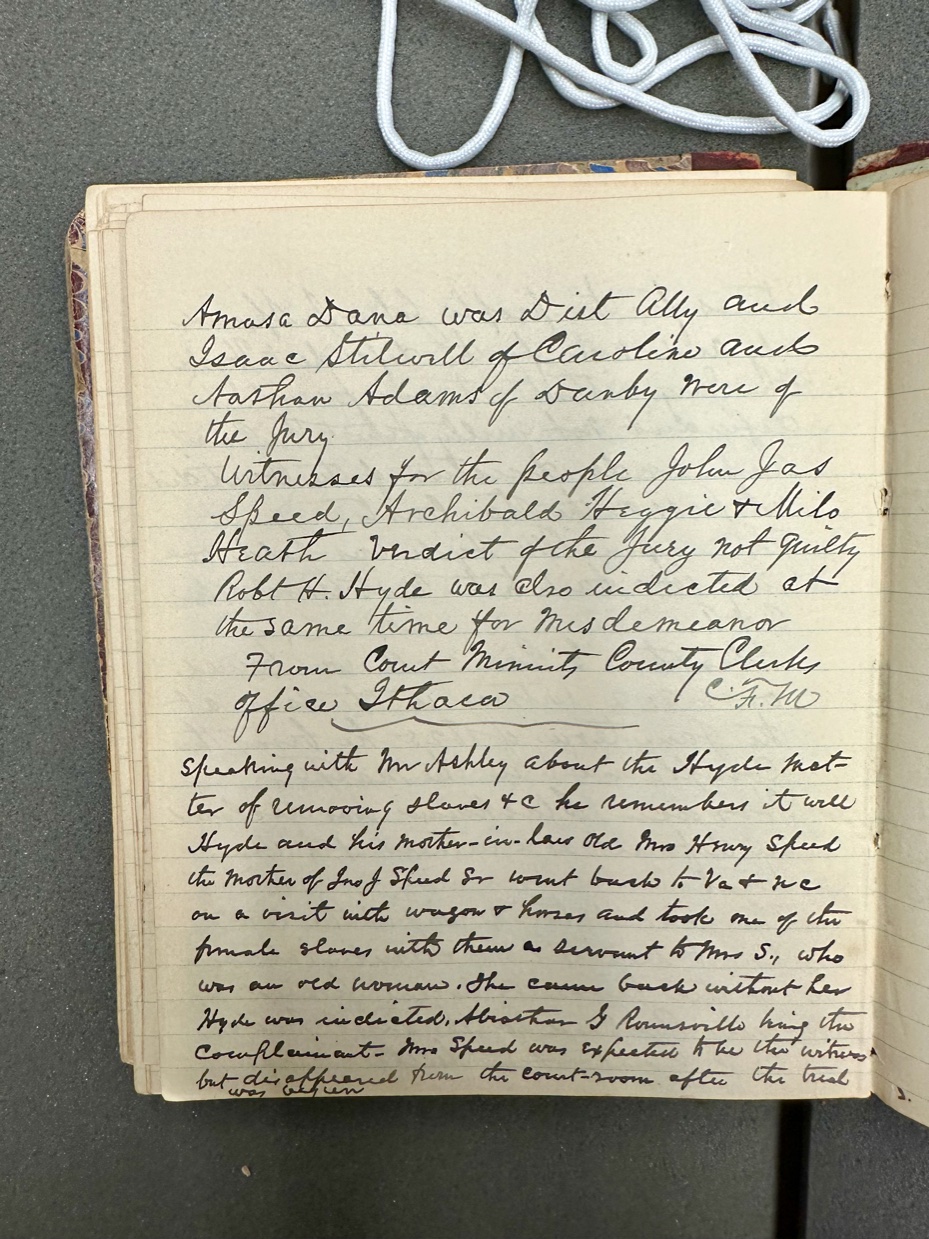 Amasa Dana was Dist Atty and
Isaac Stilwell of Caroline and
Nathan Adams of Danby were of
the Jury
Witnesses for the people John Jas
Speed, Archibald Heggie & Milo
Heath Verdict of the Jury not guilty
Robt H. Hyde was also indicted at
the same time for misdemeanor
From Court Minuits County Clerks
office Ithaca C.F.M
Speaking with Mr Ashley about the Hyde mat-
ter of removing slaves &c he remembers it well
Hyde and his mother-in-law old Mrs Henry Speed
the mother of Jno J Speed Sr went back to Va & NC
on a visit with wagon & horses and took one of the
female slaves with them as servant to Mrs S., who
was an old woman. She came back without her
Hyde was indicted, Abiathar G Rounsville being the
complainant - Mrs Speed was expected to be the witness
but disappeared from the court-room after the trial
was begun
2.